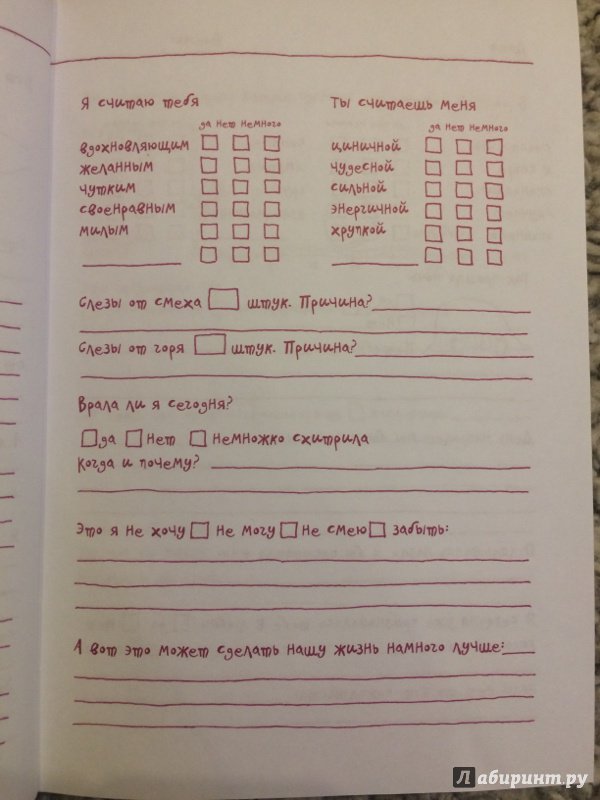 Я считаю тебя
да нет немного
вдохновляющим
желанным
чутким
своенравным
милым
Ты считаешь меня
да нет немного
циничной
чудесной
сильной
энергичной
хрупкой
Слезы от смеха штук. Причина?
Слезы от горя штук. Причина?
Врала ли я сегодня?
да нет немножко схитрила
Когда и почему?
Это я не хочу не могу не смею забыть:
А вот это может сделать нашу жизнь намного лучше:
Лабиринт.ру